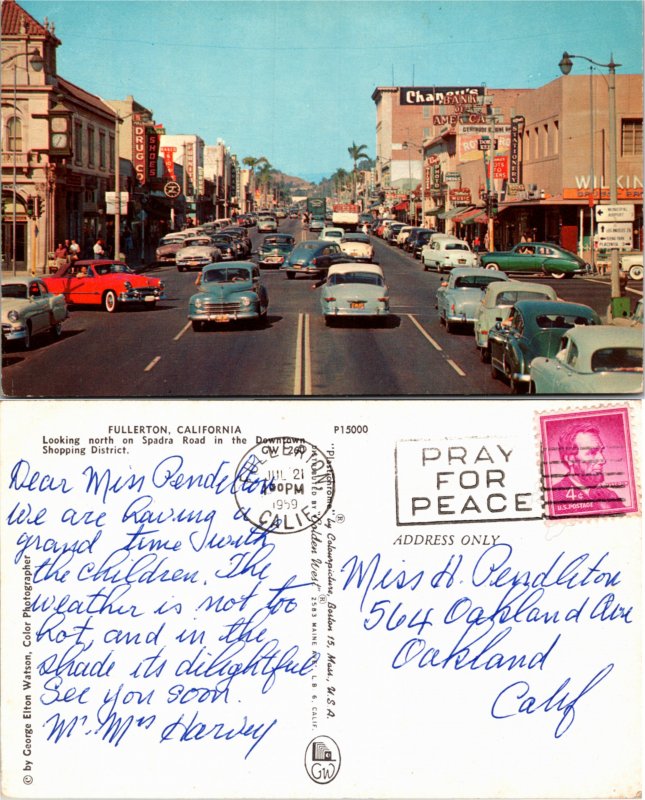 DRUG CO
SHOES
Chaney's
BANK OF
AMERICA
STATIONERY
MUSIC
WILK
MUNICIPAL
PHOTO
FULLERTON, CALIFORNIA
Looking north on Spadra Road in the Downtown
Shopping District.
GW (26)
P15000
FULLERTON
JUL 21
PM
1959
CALIF.
PRAY
FOR
PEACE
4¢
U.S. POSTAGE
Dear Miss Pendleton
We are having a
grand time with
the children. The
weather is not too
hot, and in the
shade its delightful
See you soon.
Mr. Mrs Harvey
© by George Elton Watson, Color Photographer
"Plastichrome"® by Colourpicture, Boston 15, Mass., U. S. A.
DISTRIBUTED BY "Golden West"® 2583 MAINE AVE., L. B. 6, CALIF.
GW
ADDRESS ONLY
Miss H. Pendleton
564 Oakland Ave
Oakland
Calif